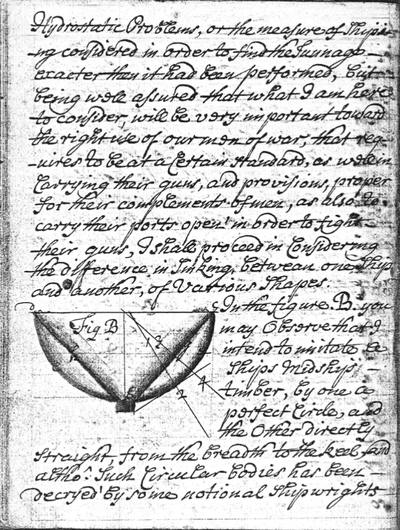 Hydrostatic Problems, or the measure of Shipi-
ng considered in order to find the tunnage
exacter then it had been performed, but
being well assured that what I am here
to consider, will be very important toward
the right use of our men of war, that req-
uires to be at a Certain standard, as well in
Carrying their guns, and provisions, proper
for their complements of men, as also to
carry their ports open in order to fight
their guns, I shall proceed in Considering
the difference in Sinking, between one Ship
and another, of Various Shapes.
D
C
Fig B
1 3
4
2
In the figure. B. you
may Observe that I
intend to imitate a
Ships Midships
timber, by one a
perfect Circle, and
the Other directly
straight from the breadth to the keel, and
altho: Such Circular bodies has been
decryed by some notional Shipwrights